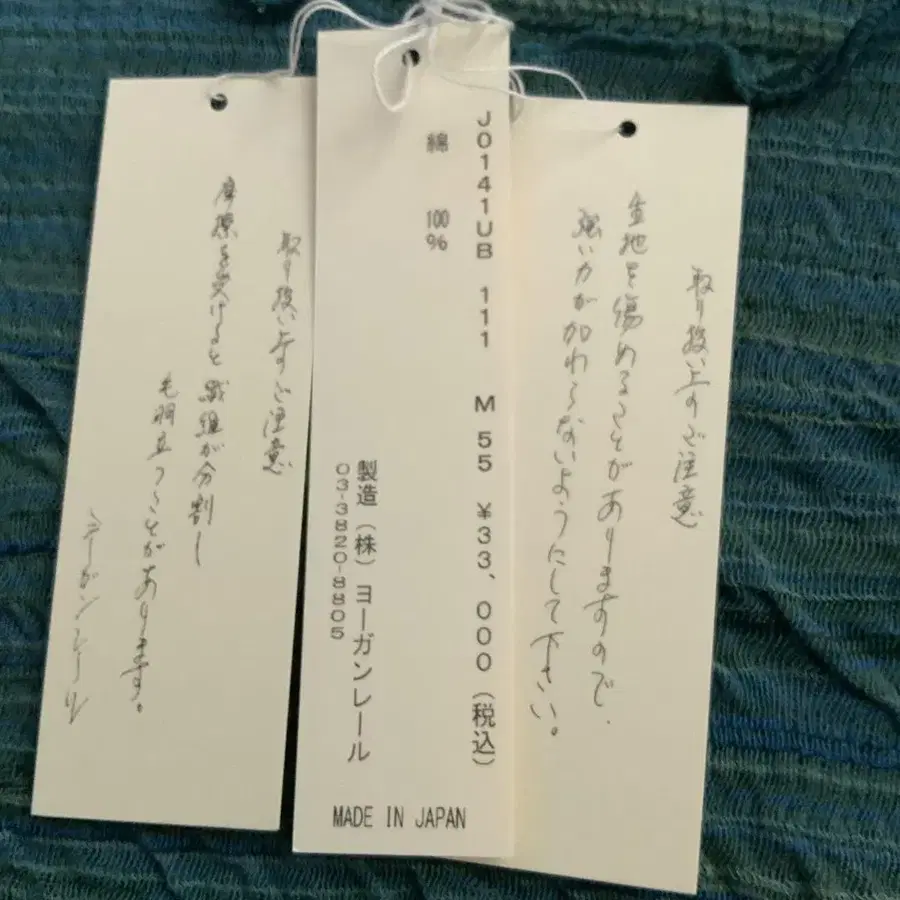 取り扱い上のご注意
摩擦を受けると繊維が分割し
毛羽立つことがあります。
ヨーガンレール
J0141UB 111 M 55 ¥33,000(税込)
綿 100%
製造(株)ヨーガンレール
03-3820-8805
MADE IN JAPAN
取り扱い上のご注意
生地を傷めることがありますので、
強い力が加わらないようにして下さい。